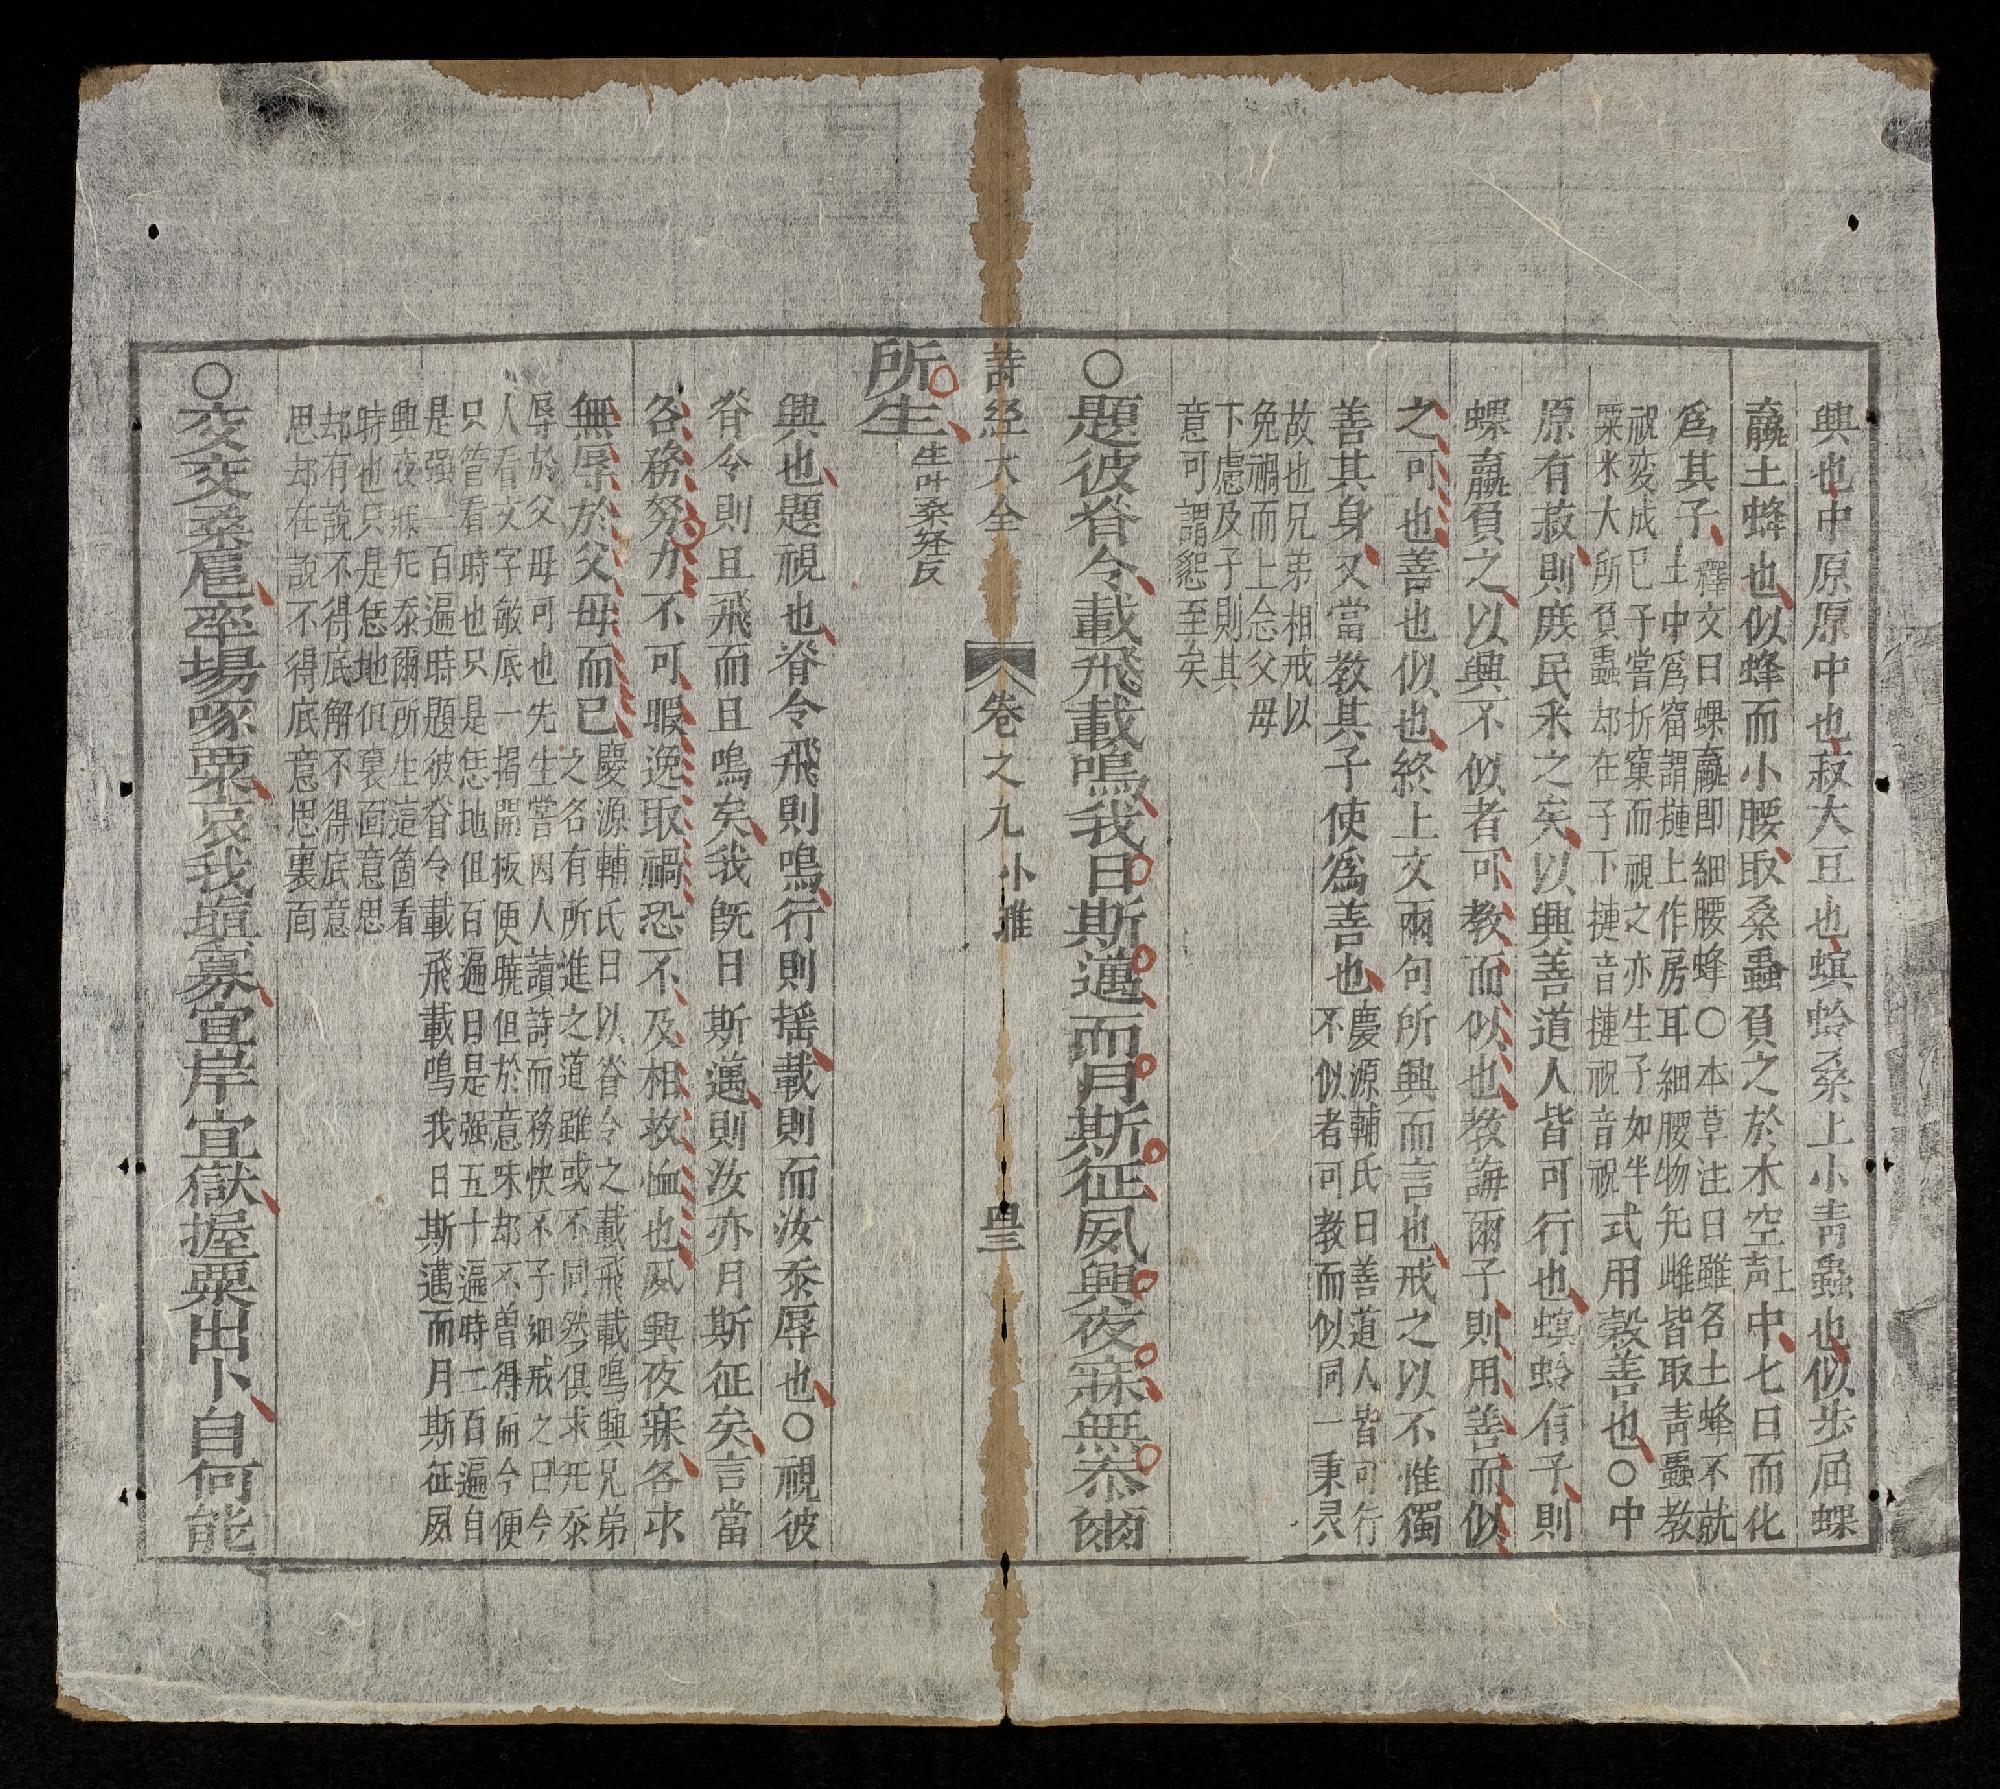 興也中原原中也菽大豆也螟蛉桑上小青蟲也似步屈蜾
蠃土蜂也似蜂而小腰取桑蟲負之於木空中七日而化
爲其子
釋文曰蜾蠃即細腰蜂○本草注曰雖各土蜂不就
土中爲窟謂摙上作房耳細腰物无雌皆取青蟲教
祝変成已子嘗折窠而視之亦生子如半
粟米大所負蟲却在子下摙音摙祝音祝
式用穀善也○中
原有菽則庶民采之矣以興善道人皆可行也螟蛉有子則
蜾蠃負之以興不似者可教而似也教誨爾子則用善而似
之可也善也似也終上文兩句所興而言也戒之以不惟獨
善其身又當教其子使爲善也
慶源輔氏曰善道人皆可行
不似者可教而似同一秉灵
故也兄弟相戒以
免禍而上念父母
下慮及子則其
意可謂懇至矣
○題彼脊令載飛載鳴我日斯邁而月斯征夙興夜寐無忝爾
詩經大全 卷之九 小雅 四三
所生
生叶桑経反
興也題視也脊令飛則鳴行則揺載則而汝忝辱也○視彼
脊令則且飛而且鳴矣我旣日斯邁則汝亦月斯征矣言當
各務努力不可暇逸取禍恐不及相救恤也夙興夜寐各求
無辱於父母而已
慶源輔氏曰以脊令之載飛載鳴興兄弟
之各有所進之道雖或不同然俱求无忝
辱於父母可也先生嘗因人讀詩而務快不子細戒之曰今
人看文字敏底一揭開板便曉但於意味却不曽得而今便
只管看時也只是恁地但百遍日是强五十遍時二百遍自
是强一百遍時題彼脊令載飛載鳴我日斯邁而月斯征夙
興夜寐无忝爾所生這箇看
時也只是恁地但裏面意思
却有說不得底解不得底意
思却在說不得底意思裏面
○交交桑扈率場啄粟哀我塡寡宜岸宜獄握粟出卜自何能